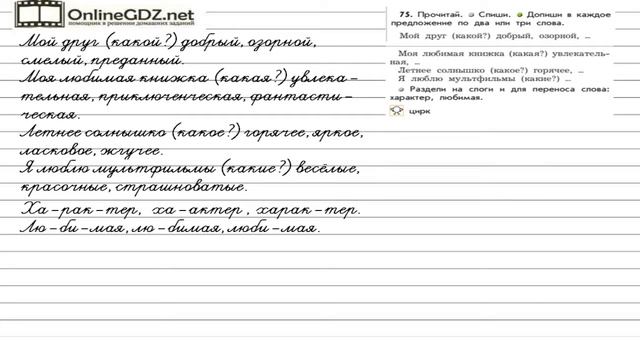 OnlineGDZ.net
помощник в решении домашних заданий
Мой друг (какой?) добрый, озорной,
смелый, преданный.
Моя любимая книжка (какая?) увлека-
тельная, приключенческая, фантасти-
ческая.
Летнее солнышко (какое?) горячее, яркое,
ласковое, жгучее.
Я люблю мультфильмы (какие?) весёлые,
красочные, страшноватые.
Ха-рак-тер, ха-актер, харак-тер.
Лю-би-мая, лю-бимая, люби-мая.
75. Прочитай. Спиши. Допиши в каждое
предложение по два или три слова.
Мой друг (какой?) добрый, озорной, ...
Моя любимая книжка (какая?) увлекатель-
ная, ...
Летнее солнышко (какое?) горячее, ...
Я люблю мультфильмы (какие?) ...
Раздели на слоги и для переноса слова:
характер, любимая.
цирк